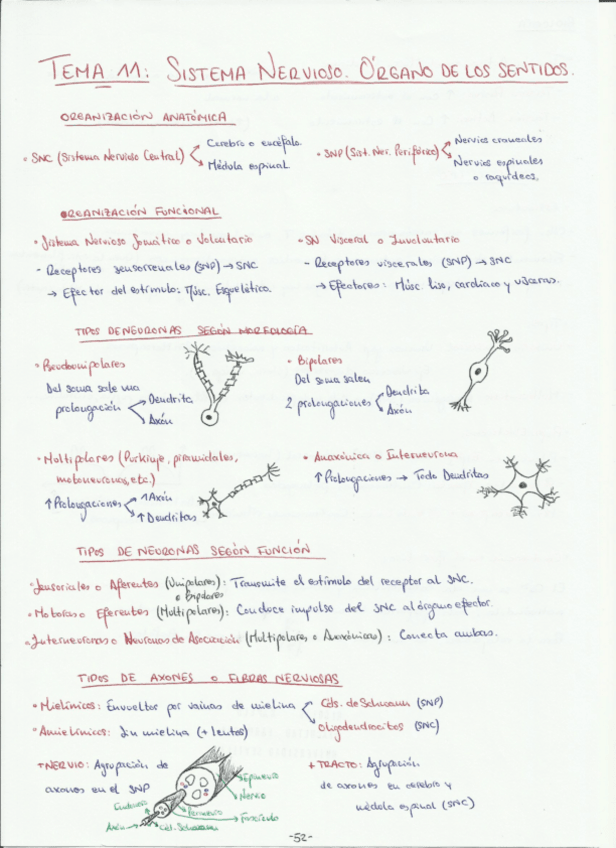 TEMA 11: SISTEMA NERVIOSO. ÓRGANO DE LOS SENTIDOS.
ORGANIZACIÓN ANATÓMICA
• SNC (Sistema Nervioso Central)
Cerebro o encéfalo.
Médula espinal
• SNP (Sist. Ner. Periférico)
Nervios craneales
Nervios espinales
o raquídeos.
ORGANIZACIÓN FUNCIONAL
• Sistema Nervioso Somático o Voluntario
- Receptores sensorreales (SNP) → SNC
→ Efector del estímulo: Músc. Esquelético.
• SN Visceral o Involuntario
- Receptores viscerales (SNP) → SNC
→ Efectores: Músc. liso, cardíaco y vísceras.
TIPOS DE NEURONAS SEGÚN MORFOLOGÍA
• Pseudounipolares
Del soma sale una
prolongación
Dendrita
Axón
• Bipolares
Del soma salen
2 prolongaciones
Dendrita
Axón
• Multipolares (Purkinje, piramidales,
motoneuronas, etc.)
↑ Prolongaciones
1 Axón
↑ Dendritas
• Anaxónica o Interneurona
↑ Prolongaciones → Todo Dendritas
TIPOS DE NEURONAS SEGÚN FUNCIÓN
• Sensoriales o Aferentes (Unipolares): Transmite el estímulo del receptor al SNC.
o Bipolares
• Motoras o Eferentes (Multipolares): Conduce impulso del SNC al órgano efector.
• Interneuronas o Neuronas de Asociación (Multipolares o Anaxónicas): Conecta ambas.
TIPOS DE AXONES O FIBRAS NERVIOSAS
• Mielínicos: Envueltos por vainas de mielina
Céls. de Schwann (SNP)
Oligodendrocitos (SNC)
• Amielínicos: Sin mielina (+ lentos)
+ NERVIO: Agrupación de
axones en el SNP
+ TRACTO: Agrupación
de axones en cerebro y
médula espinal (SNC)
Epineuro
Nervio
Fascículo
Perineuro
Endoneuro
Axón
Cél. Schwann
-52-